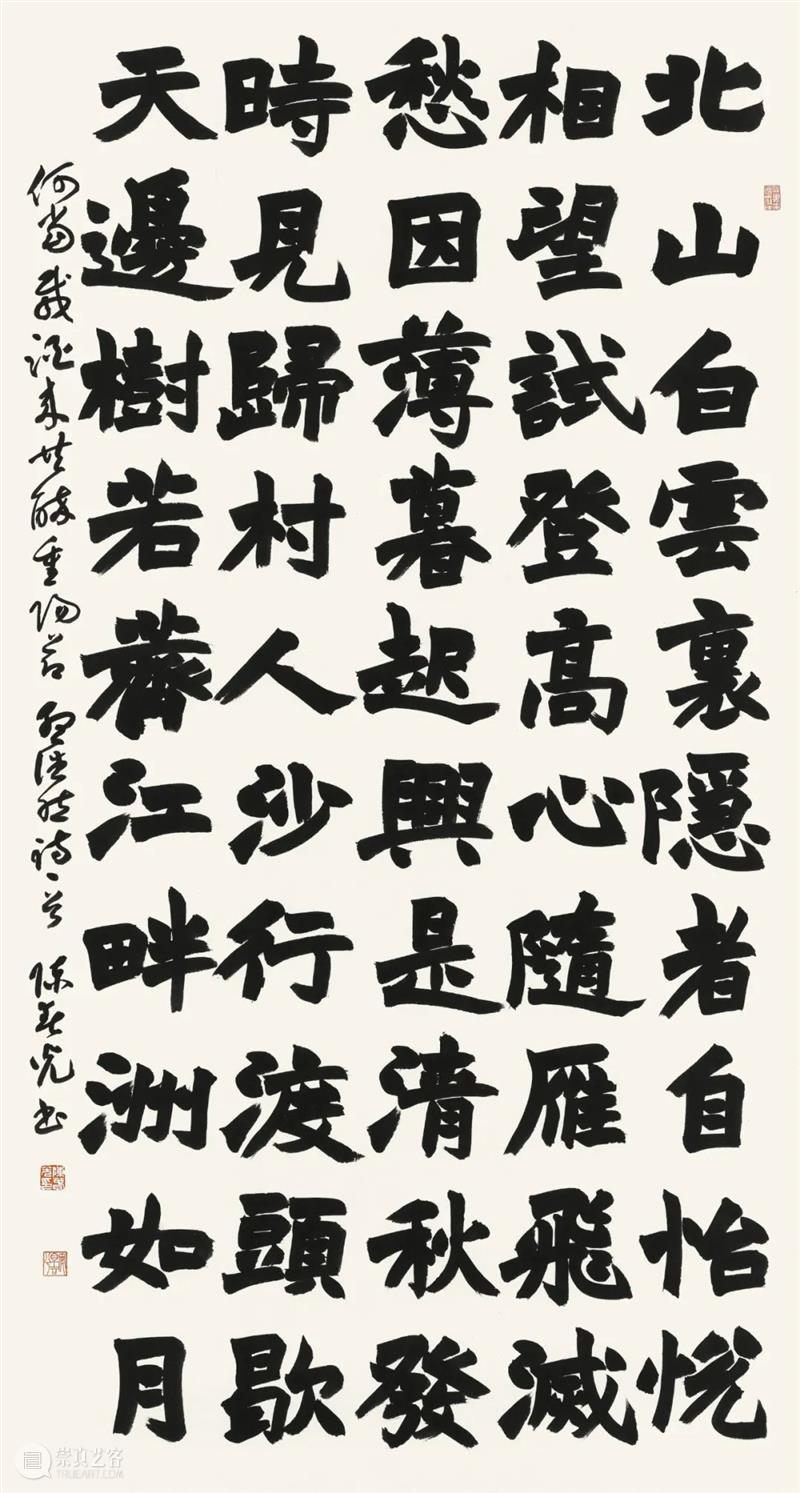 北山白雲裏隱者自怡悅
相望試登高心隨雁飛滅
愁因薄暮起興是清秋發
時見歸村人沙行渡頭歇
天邊樹若薺江畔洲如月
何當載酒來共醉重陽節 孟浩然詩一首 陳 光書
崇真艺客
TRUEART.COM